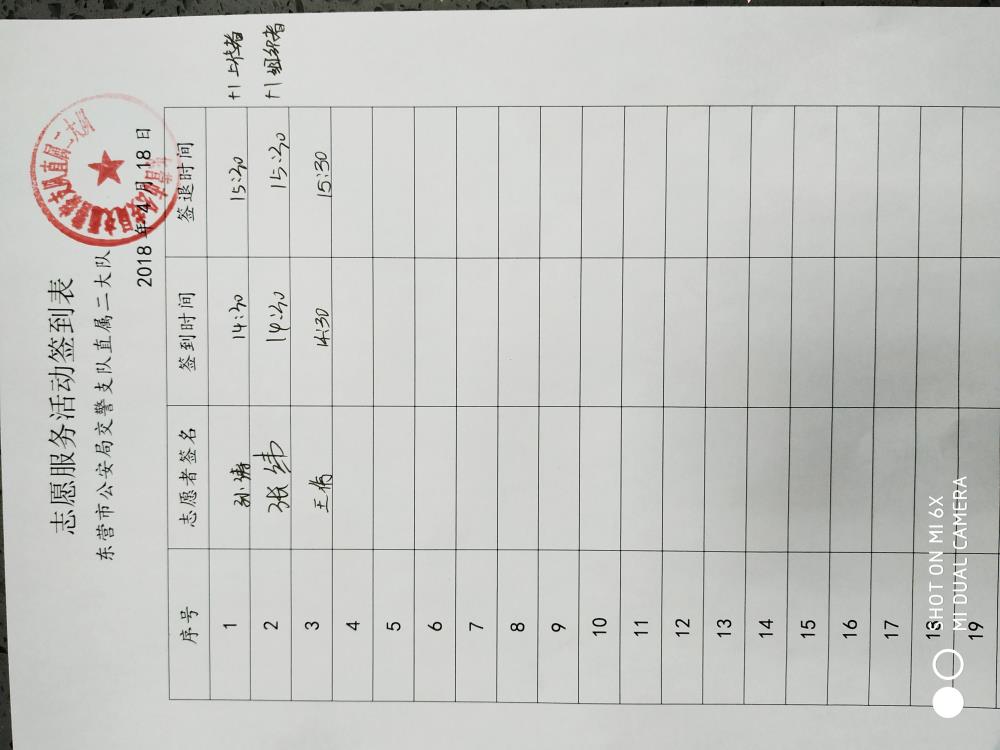 志愿服务活动签到表
东营市公安局交警支队直属二大队
2018 年 4 月 18 日
序号 志愿者签名 签到时间 签退时间
1 孙涛 14:30 15:30 +1 上传者
2 张纬 14:30 15:30 +1 组织者
3 王伟 14:30 15:30
4
5
6
7
8
9
10
11
12
13
14
15
16
17
18
19
SHOT ON MI 6X
MI DUAL CAMERA